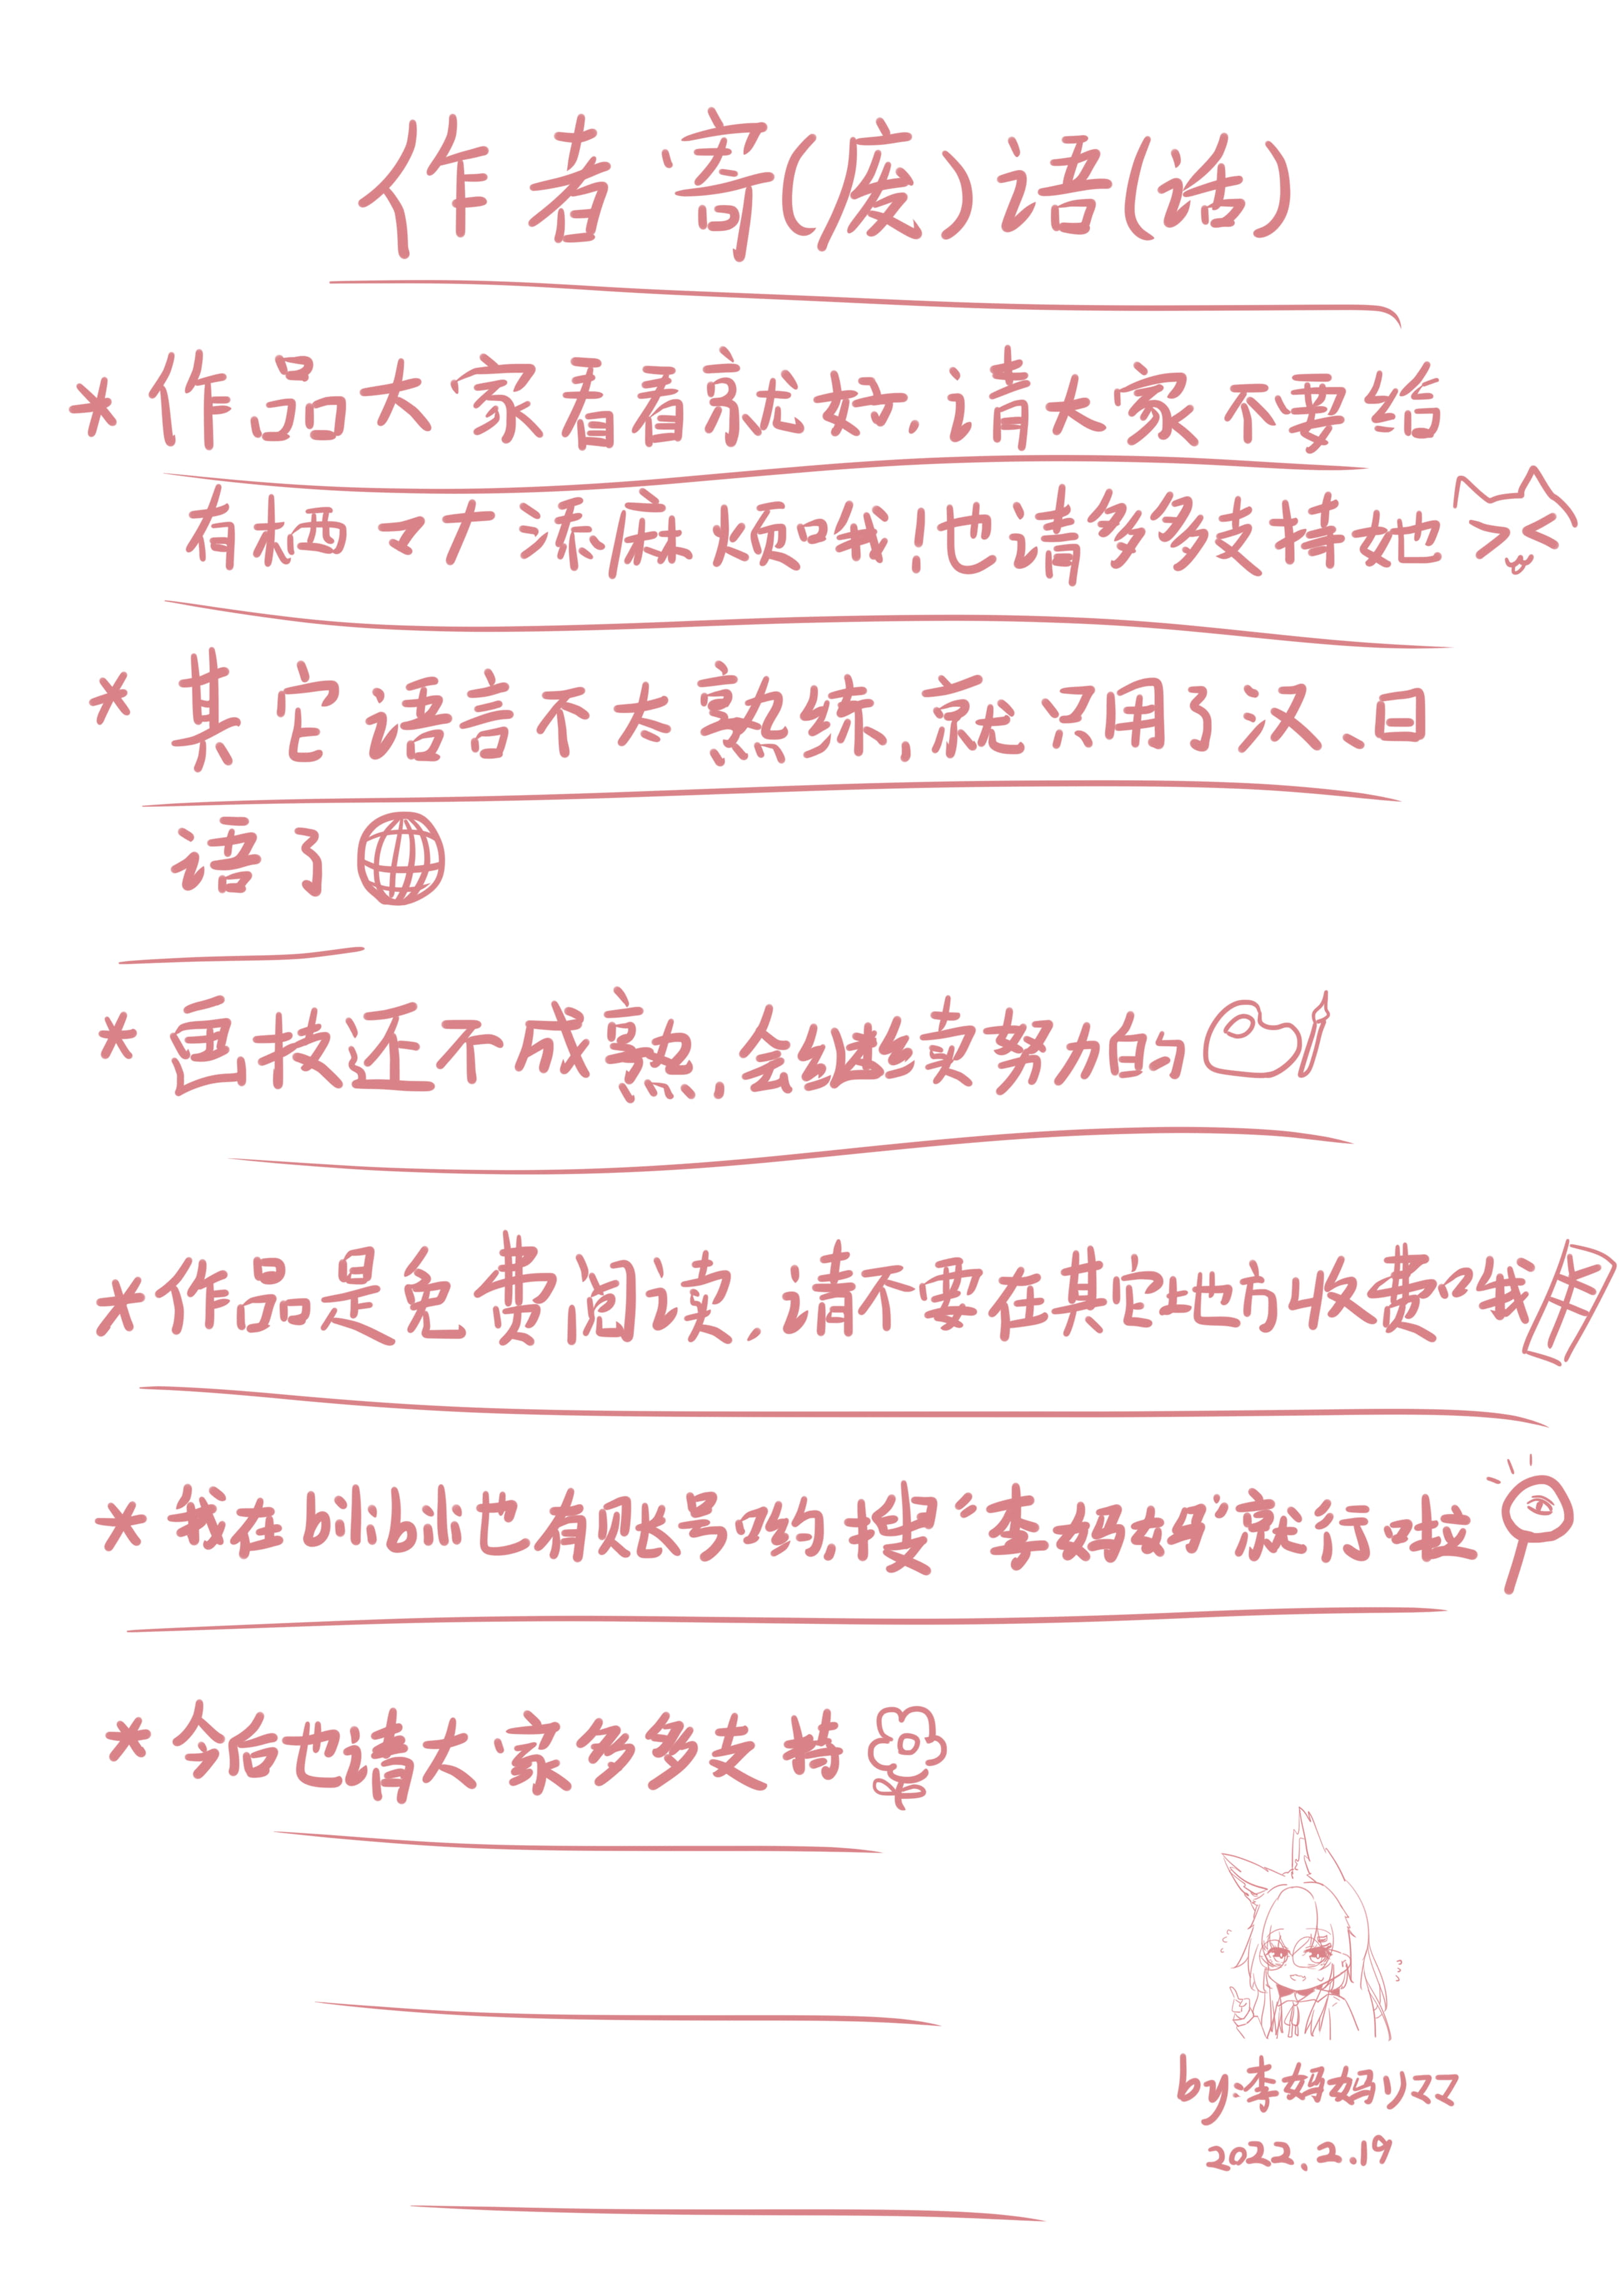 作者寄(废)语(话)
*作品大家看看就好,请大家不要给
有抽四个添麻烦哦!也请多多支持如也
*其它语言不太熟练,就只用了汉、日
语了
*画技还不成熟,会继续努力画的
*作品是免费阅读,请不要在其它地方收费哦
*我在bilibili也有账号的,搜“李妈妈”就行啦
*今后也请大家多多支持
by:李妈妈リママ
2022.2.19